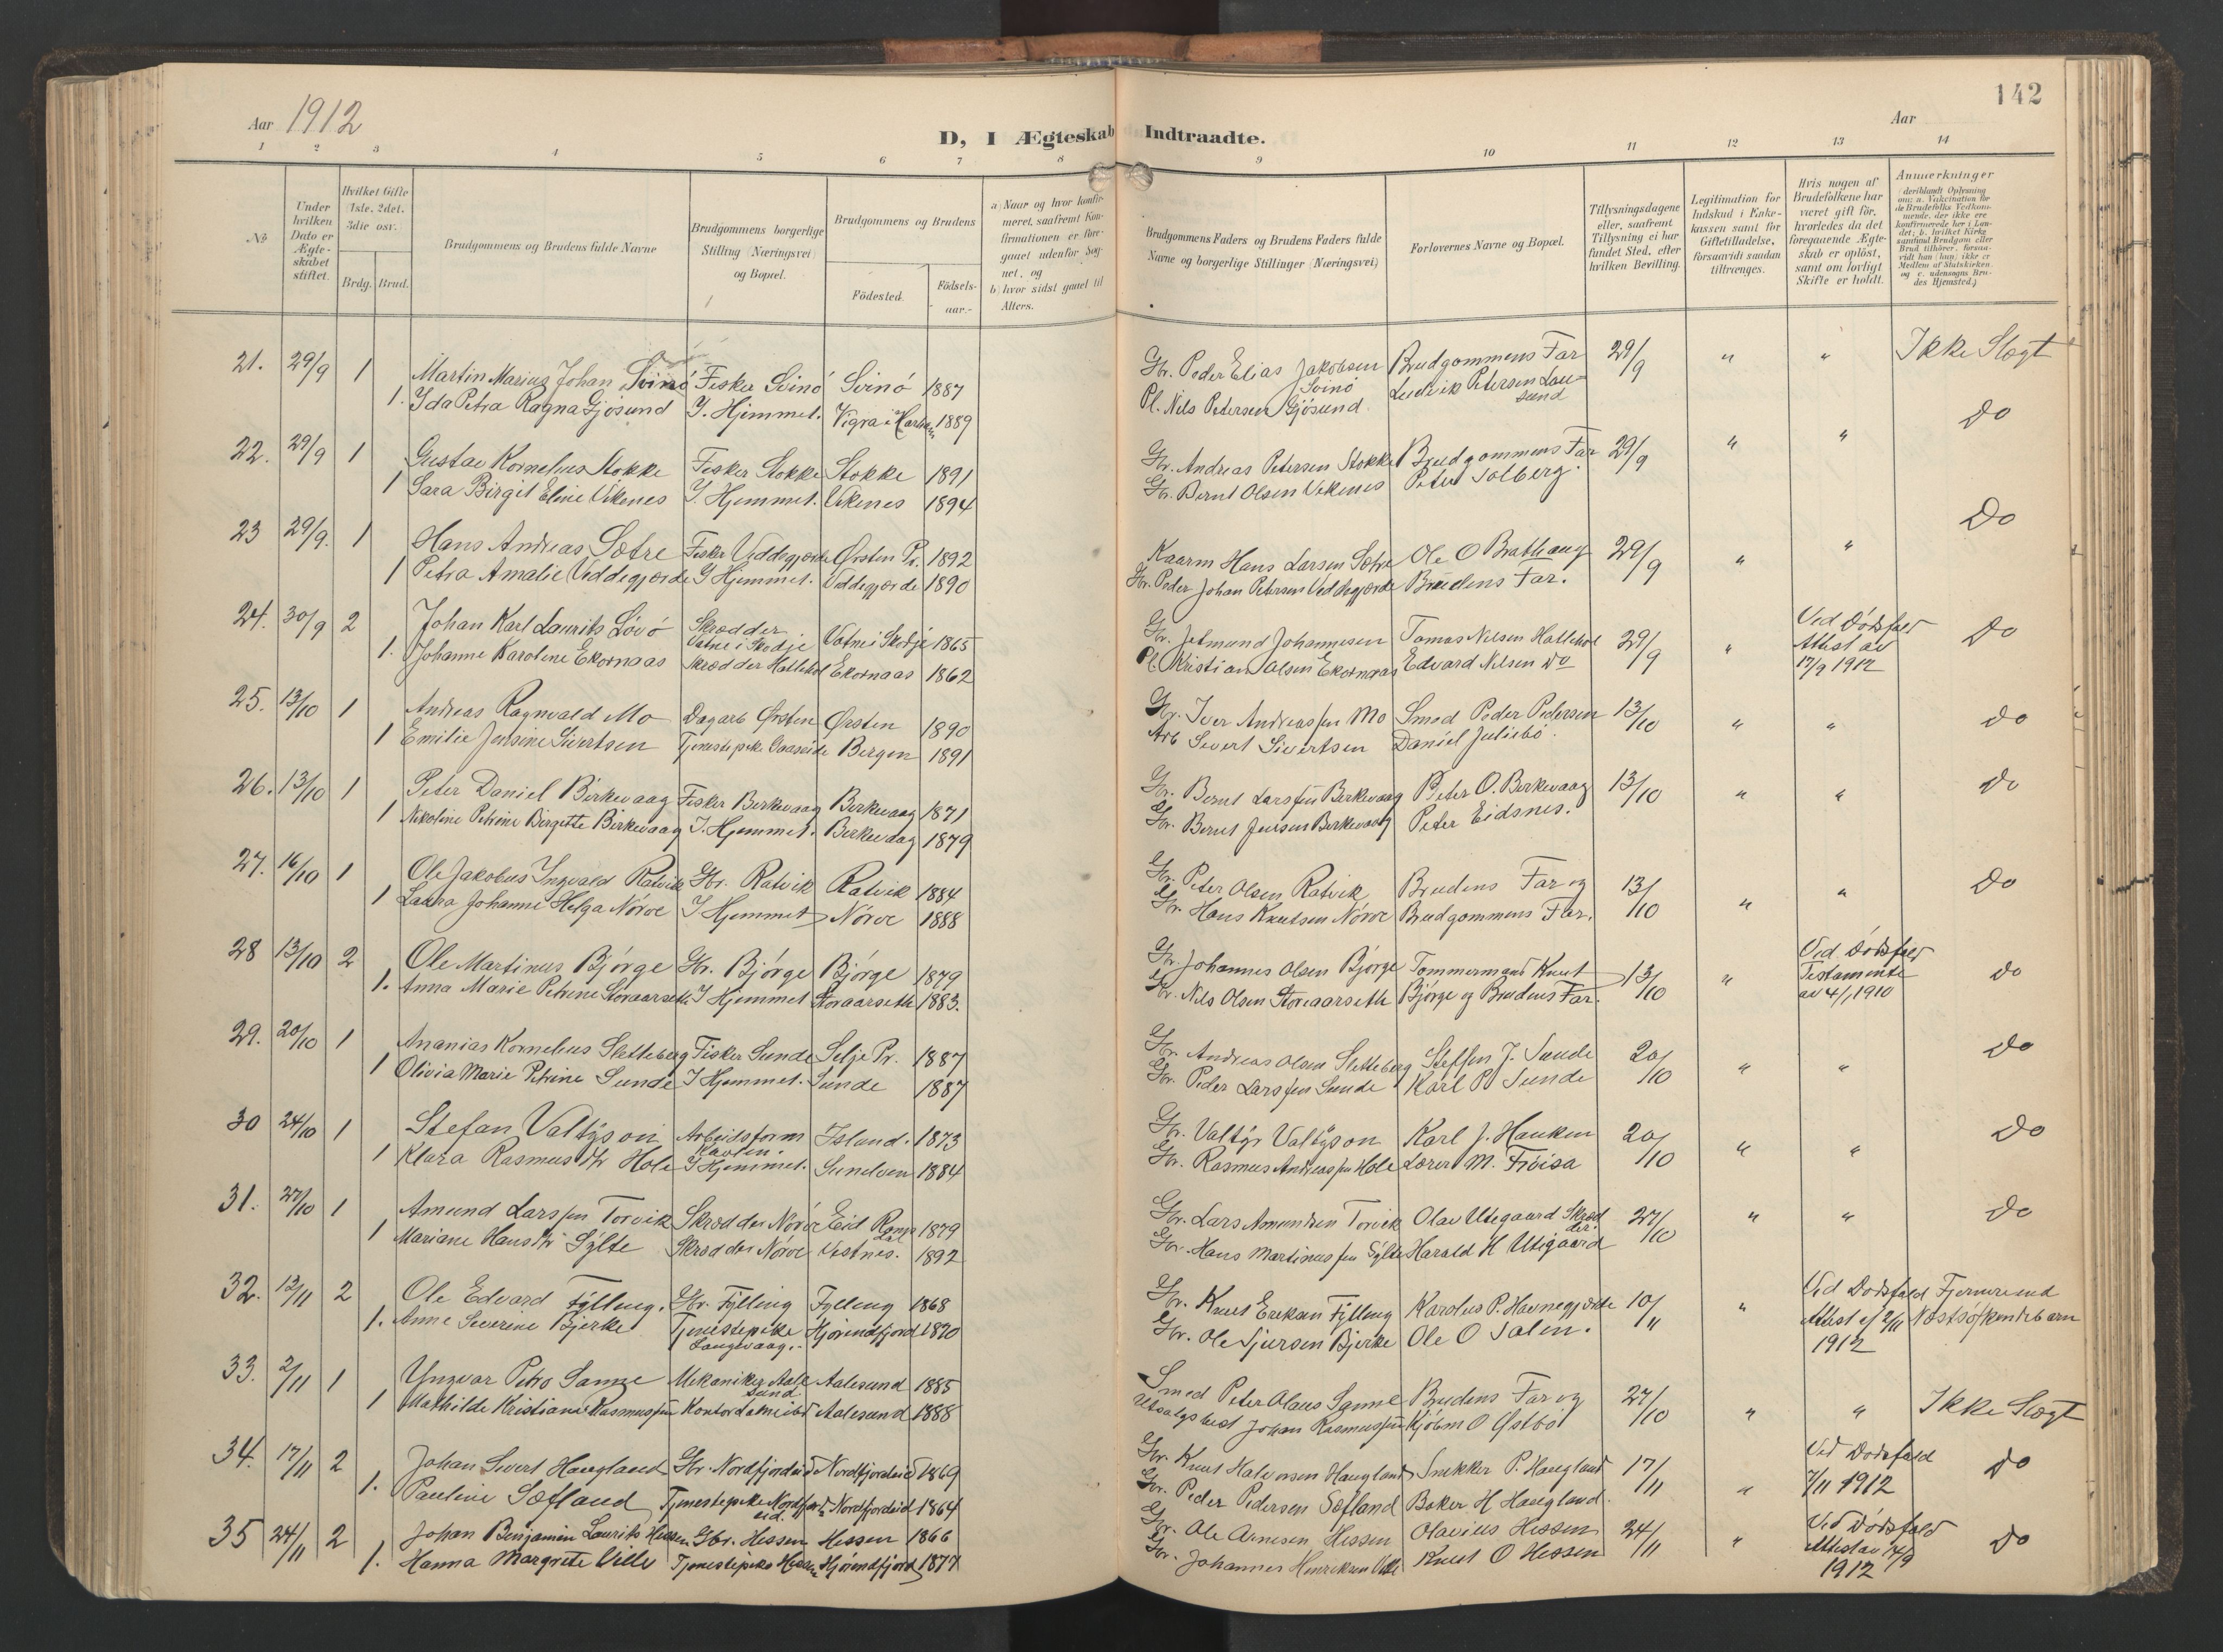 142
Aar 1912
Aar
D, I Ægteskab Indtraadte.
1 2 3 4 5 6 7 8 9 10 11 12 13 14
No
Under hvilken Dato er Ægteskabet stiftet.
Hvilket Gifte (1ste, 2det, 3die osv.
Brdg. Brud.
Brudgommens og Brudens fulde Navne
Brudgommens borgerlige Stilling (Næringsvei) og Bopæl.
Brudgommens og Brudens
Födested.
Födsels-aar.
a) Naar og hvor konfirmeret, saafremt Konfirmationen er foregaaet udenfor Sognet, og
b) hvor sidst gaaet til Alters.
Brudgommens Faders og Brudens Faders fulde Navne og borgerlige Stillinger (Næringsvei)
Forlovernes Navne og Bopæl.
Tillysningsdagene eller, saafremt Tillysning ei har fundet Sted, efter hvilken Bevilling.
Legitimation for Indskud i Enkekassen samt for Giftetilladelse, forsaavidt saadan tiltrænges.
Hvis nogen af Brudefolkene har været gift för, hvorledes da det foregaaende Ægteskab er oplöst, samt om lovligt Skifte er holdt.
Anmærkninger
(deriblandt Oplysning om: a. Vakcination för de Brudefolks Vedkommende, der ikke ere konfirmerede her i Landet; b. hvilket Kirkesamfund Brudgom eller Brud tilhörer, forsaavidt han (hun) ikke er Medlem af Statskirken, og c. udensogns Brudes Hjemsted.)
21. 29/9 1 Martin Marius Johan Svinö Fisker Svinö Svinö 1887 Gbr. Peder Elias Jakobsen Svinö Brudgommens Far 29/9 " " Ikke Slegt
1. Ida Petra Ragna Gjösund I. Hjemmet. Vigra i Haram 1889 Pl. Nils Petersen Gjösund Ludvik Petersen Lausund
22. 29/9 1 Gustav Kornelius Stokke Fisker Stokke Stokke 1891 Gbr. Andreas Petersen Stokke Brudgommens Far 29/9 " " Do
1 Sara Birgit Eline Vikenes I. Hjemmet. Vikenes 1894 Gbr. Bernt Olsen Vikenes Peter Solberg.
23 29/9. 1 Hans Andreas Sætre Fisker Veddegjerde Ørsten Pr. 1892 Kaarm Hans Larsen Sætre Ole O Brathaug 29/9 " " Do
1 Petra Amalie Veddegjerde I Hjemmet. Veddegjerde 1890 Gbr. Peder Johan Petersen Veddegjerde Brudens Far.
24. 30/9 2 Johan Karl Laurits Lövö Skrædder Vatne i Skodje Vatne i Skodje 1865 Gbr. Jetmund Johannesen Tomas Nilsen Hatlehol 29/9 " Ved Dödsfald Attest av 17/9 1912 Do
1. Johanne Karoline Ekornaas Skrædder Hatlehol Ekornaas 1862 Pl. Kristian Olsen Ekornaas Edvard Nilsen Do
25. 13/10 1 Andreas Ragnvald Mo Dagarb Ørsten Ørsten 1890 Gbr. Iver Andreassen Mo Smed Peder Pedersen 13/10 " " Do
1 Emilie Jensine Sivertsen Tjenestepike Bergen 1891 Arb Sivert Sivertsen Daniel Juliebö.
26. 13/10 1 Peter Daniel Birkevaag Fisker Berkevaag Berkevaag 1871 Gbr. Bernt Larssen Berkevaag Peter O. Berkevaag 13/10 " " Do
1 Nikoline Petrine Birgitte Birkevaag I. Hjemmet. Berkevaag 1879 Gbr. Bernt Jensen Berkevaag Peter Eidsnes.
27. 16/10 1 Ole Jakobus Ingvald Ratvik Gbr. Ratvik Ratvik 1884 Gbr. Peter Olsen Ratvik Brudens Far og 13/10 " " Do
1 Laura Johanne Helga Nörve I Hjemmet Nörve 1888 Gbr. Hans Knutsen Nörve Brudgommens Far.
28 13/10 2 Ole Martinus Bjørge Gbr. Bjørge Bjørge 1879 Gbr. Johannes Olsen Bjørge Tømmermand Knut 13/10 " Ved Dödsfald Testamente av 4/1 1910 Do
1. Anna Marie Petrine Storaarseth I Hjemmet Storaarseth 1883. Gbr. Nils Olsen Storaarseth Bjørge og Brudens Far.
29. 20/10 1 Ananias Kornelius Sletteberg Fisker Sunde Selje Pr. 1887 Gbr. Andreas Olsen Sletteberg Steffen J. Sunde 20/10 " " Do
1 Olivia Marie Petrine Sunde I Hjemmet. Sunde 1887 Gbr. Peder Larssen Sunde Karl P Sunde
30 24/10 1 Stefan Valtyson Arbeidsform Island. 1873 Gbr. Valtyr Valtyson Karl J. Hauken 20/10 " " Do
1 Klara Rasmusdtr Hole I Hjemmet. Sunelven 1884 Gbr. Rasmus Andreassen Hole Lærer M. Fröisa
31. 27/10 1 Amund Larssen Torvik Skrædder Nörve Eid Romsdal 1879 Gbr. Lars Amundsen Torvik Olav Utegaard Skrædder. 27/10 " " Do
1 Mariane Hansdtr Sylte Skrædder Nörve Vestnes. 1892 Gbr. Hans Martinussen Sylte Harald H Utigaard
32. 12/11 2 Ole Edvard Fylling. Gbr. Fylling Fylling 1868 Gbr. Knut Eriksen Fylling Karolus P. Havnegjerde 10/11 " Ved Dödsfald Attest af 2/11 1912 Fjernere end Næstsöskendebarn
1. Anne Severine Bjerke Tjenestepike Langevaag. Hjörendfjord 1870 Gbr. Ole Sjursen Bjerke Ole O Salen.
33. 2/11 1 Yngvar Petro Sanne Mekaniker Aalesund Aalesund 1885 Smed Peter Olaus Sanne Brudens Far og 27/10 " " Ikke Slegt
1 Mathilde Kristiane Rasmussen Aalesund 1888 Utsalgsbest Johan Rasmussen Kjøbm O Østbö
34. 17/11 2 Johan Sivert Haugland Gbr. Nordfjordeid Nordfjordeid 1869 Gbr. Knut Halvorsen Haugland Snekker P. Haugland 17/11 " Ved Dödsfald 7/11 1912 Do
1. Pauline Sætland Tjenestepike Nordfjordeid. Nordfjordeid 1864 Gbr. Peder Pedersen Sætland Baker H Haugland.
35 24/11 2 Johan Benjamin Laurits Hessen Gbr. Hessen Hessen 1866 Gbr. Ole Arnesen Hessen Olavius Hessen 24/11 " Ved Dödsfald Attest av 14/9 1912 Do
1. Hanna Margrete Ville Tjenestepike Hessen Hjörendfjord 1877 Gbr. Johannes Henriksen Ville Knut O Hessen